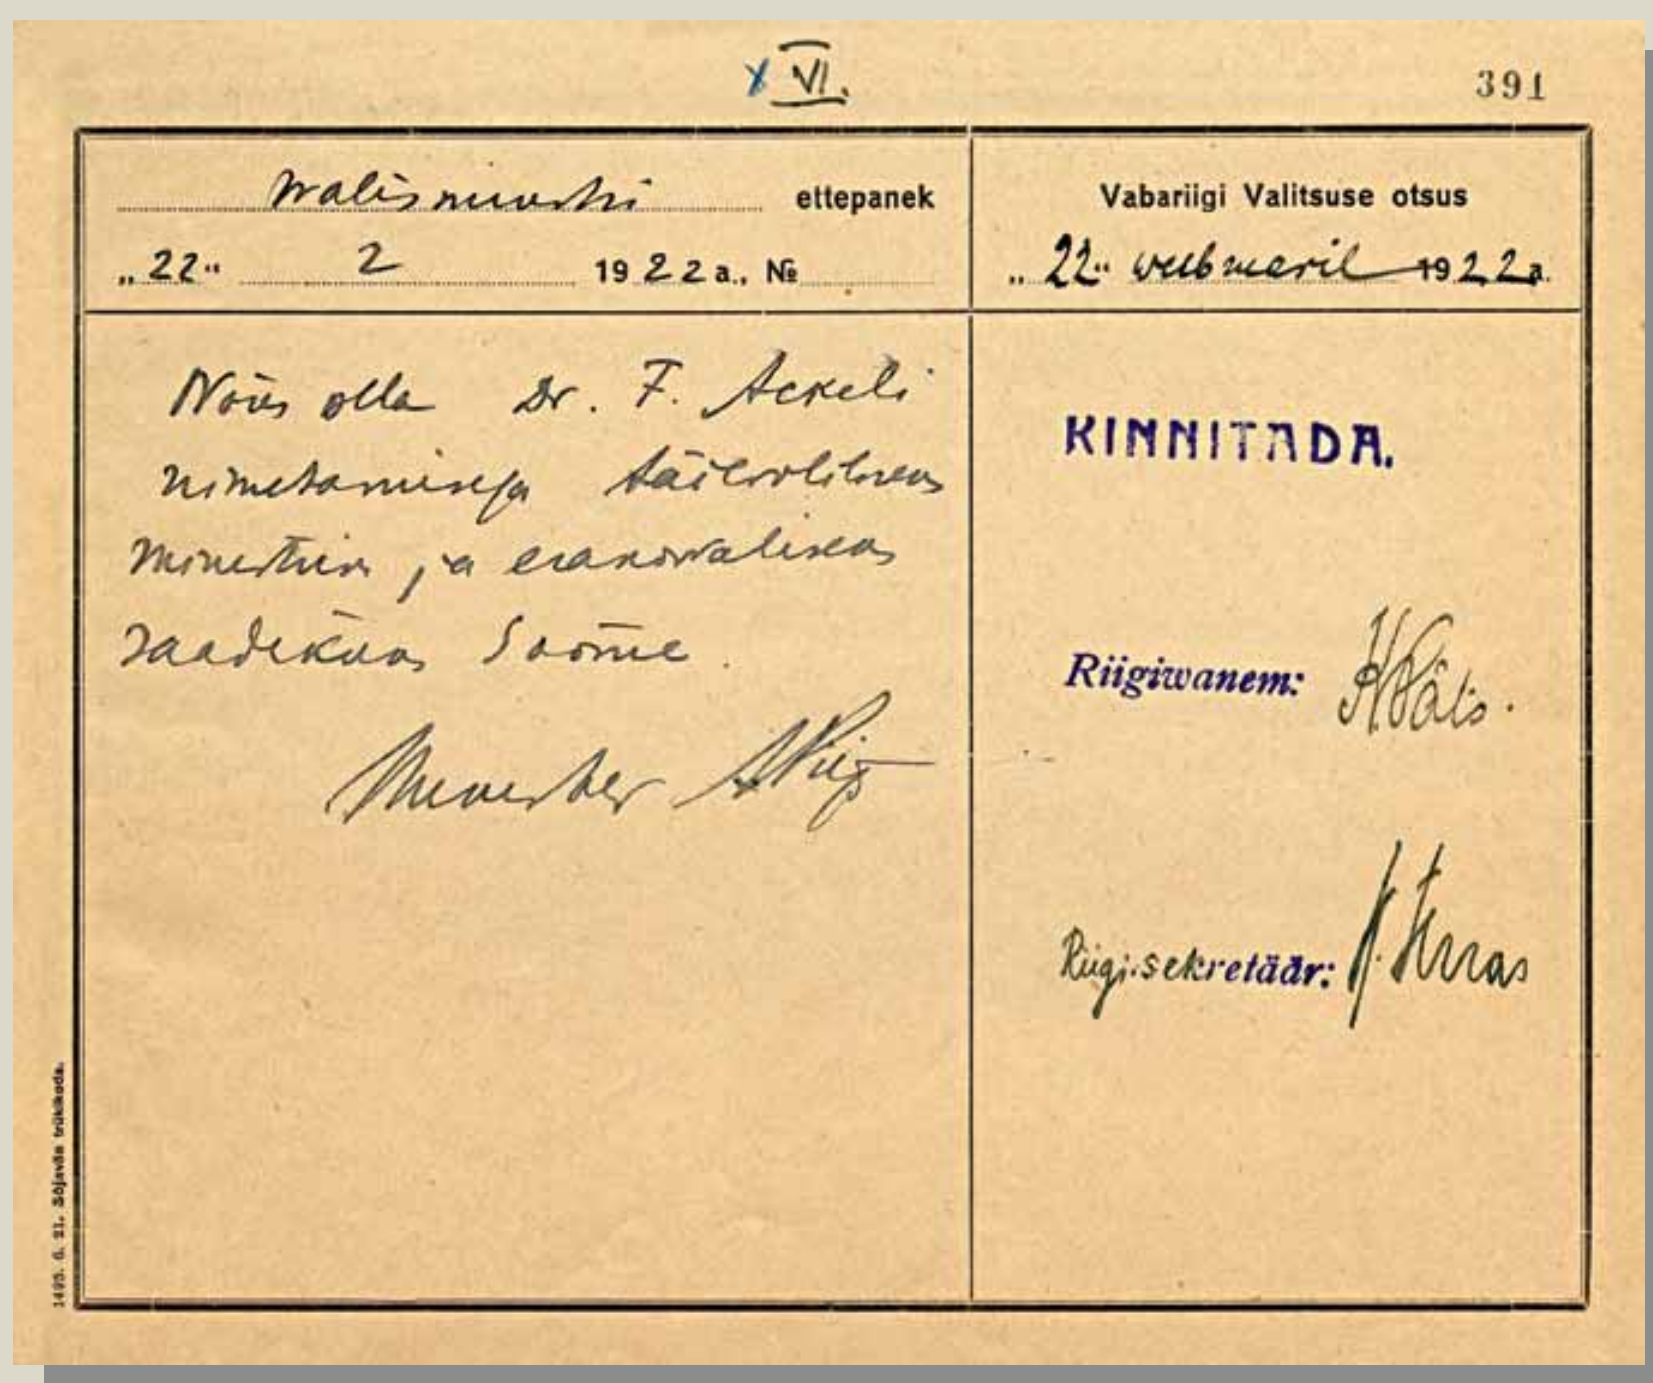 VI.
391
Walisministri ettepanek
„22“ 2 1922 a., №
Nõus olla Dr. F. Ackeli
nimetamisega täievolilisens
ministrina ja erakorralisens
saadikuna Soome.
Minister APiip
Vabariigi Valitsuse otsus
„22“ weebruaril 1922 a.
KINNITADA.
Riigiwanem: KPäts.
Riigisekretäär: K. Terras
1495. 6. 21. Sõjaväe trükikoda.